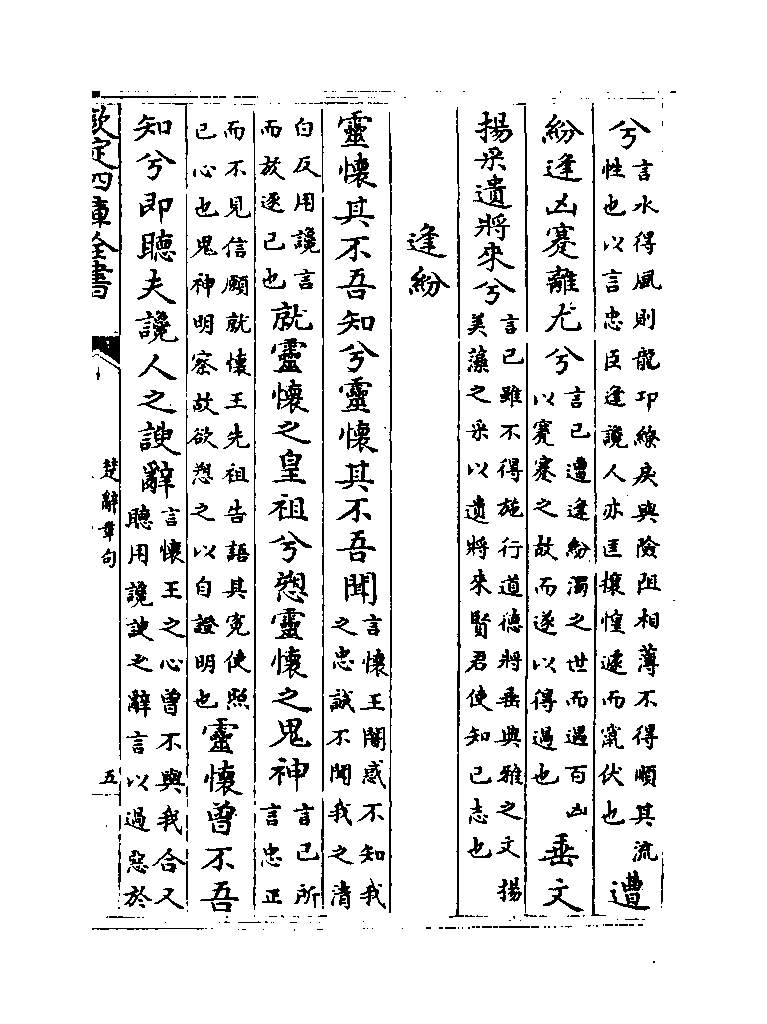 兮言水得風則龍卭繚戾與險阻相薄不得順其流性也以言忠臣逢讒人亦匡攘惶遽而竄伏也遭
紛逢凶蹇離尤兮言已遭逢紛濁之世而遇百凶以蹇蹇之故而遂以得過也垂文
揚采遺將來兮言已雖不得施行道德將垂典雅之文揚美藻之采以遺將來賢君使知已志也
逢紛
靈懷其不吾知兮靈懷其不吾聞言懷王闇惑不知我之忠誠不聞我之清
白反用讒言而放逐已也就靈懷之皇祖兮愬靈懷之鬼神言已所言忠正
而不見信願就懷王先祖告語其寃使照已心也鬼神明察故欲愬之以自證明也靈懷曾不吾
知兮即聽夫讒人之諛辭言懷王之心曾不與我合又聽用讒諛之辭言以過惡於
欽定四庫全書
楚辭章句
五